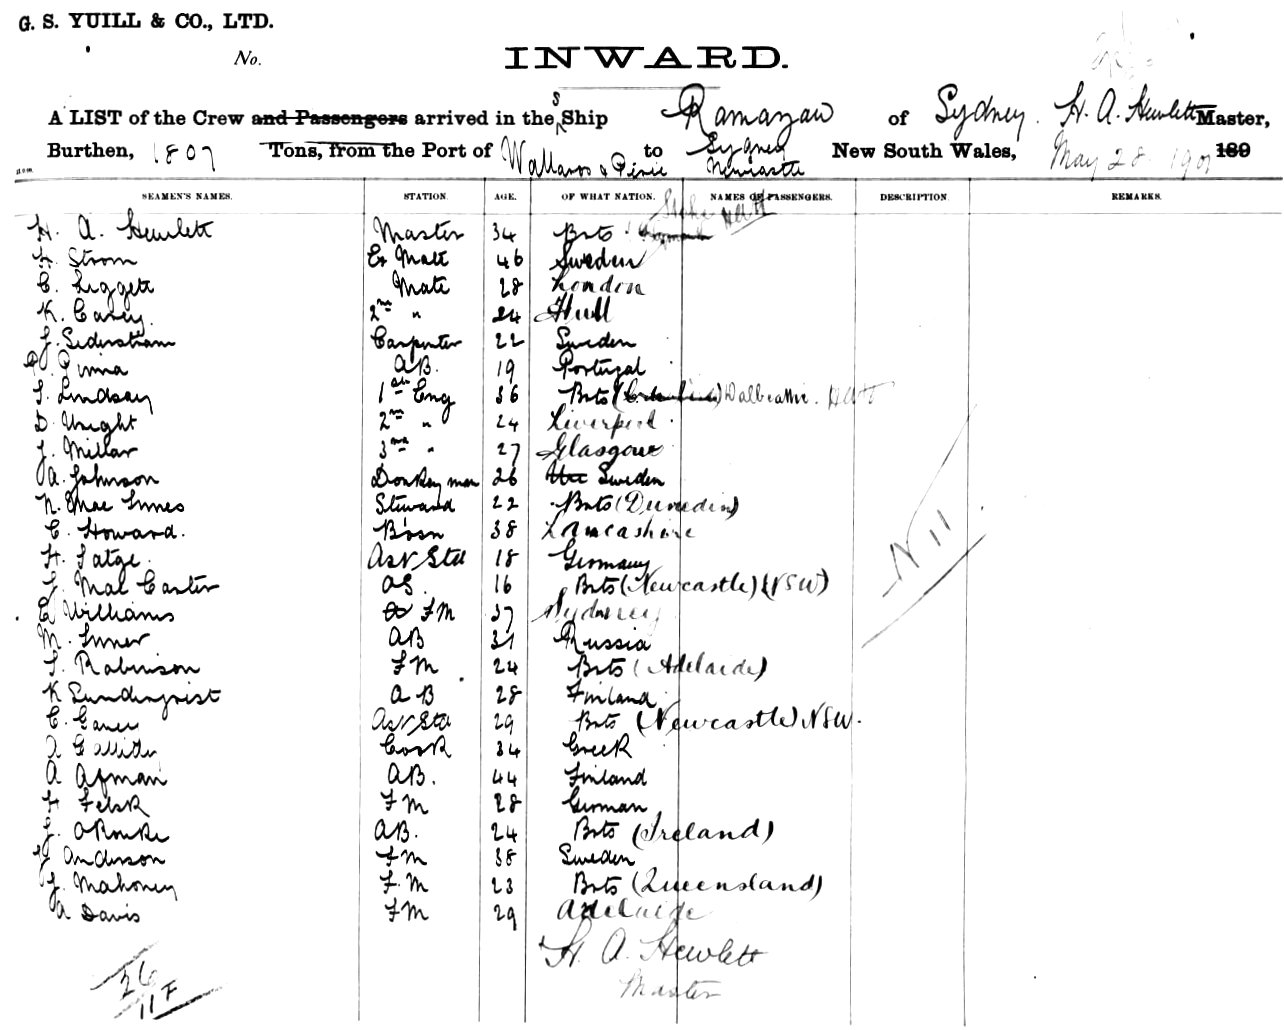 G. S. YUILL & CO., LTD.
No.
INWARD.
A LIST of the Crew and Passengers arrived in the S Ship Ramazan of Sydney. H. A. Hewlett Master,
Burthen, 1807 Tons, from the Port of Wallaroo & Pirie to Sydney Newcastle New South Wales, May 28 1901 189
SEAMEN'S NAMES. STATION. AGE. OF WHAT NATION. NAMES OF PASSENGERS. DESCRIPTION REMARKS.
H. A. Hewlett Master 34 Brts Stoke HAH
Strom Ex Mate 46 Sweden
C. Liggett Mate 28 London
K. Carey. 2nd " 24 Hull
J. Sederstram Carpenter 22 Sweden
Pinna AB. 19 Portugal
S. Lindsay 1st Eng 36 Brts Dalbeattie. HAH
D. Wright 2nd " 24 Liverpool
J. Millar 3rd " 27 Glasgow
A. Johnson Donkeyman 26 Sweden
N. Mac Innes Steward 22 Brts (Dunedin)
C. Howard. Bosn 38 Lancashire
H. Satge. Asst Std 18 Germany
Mac Carter OS. 16 Brts (Newcastle) (NSW)
E Williams FM 37 Sydney
M. Inner AB 31 Russia
S. Robinson FM 24 Brts (Adelaide)
K Lundqvist AB 28 Finland
C. Asst Std 29 Brts (Newcastle) NSW.
Cook 34 Greek
A Afman AB. 44 Finland
H Felsk FM 28 German
J. ORourke AB. 24 Brts (Ireland)
Anderson FM 38 Sweden
J. Mahoney F.M 23 Brts (Queensland)
A Davis FM 29 Adelaide
Nil
H. A. Hewlett
Master
26
11 F